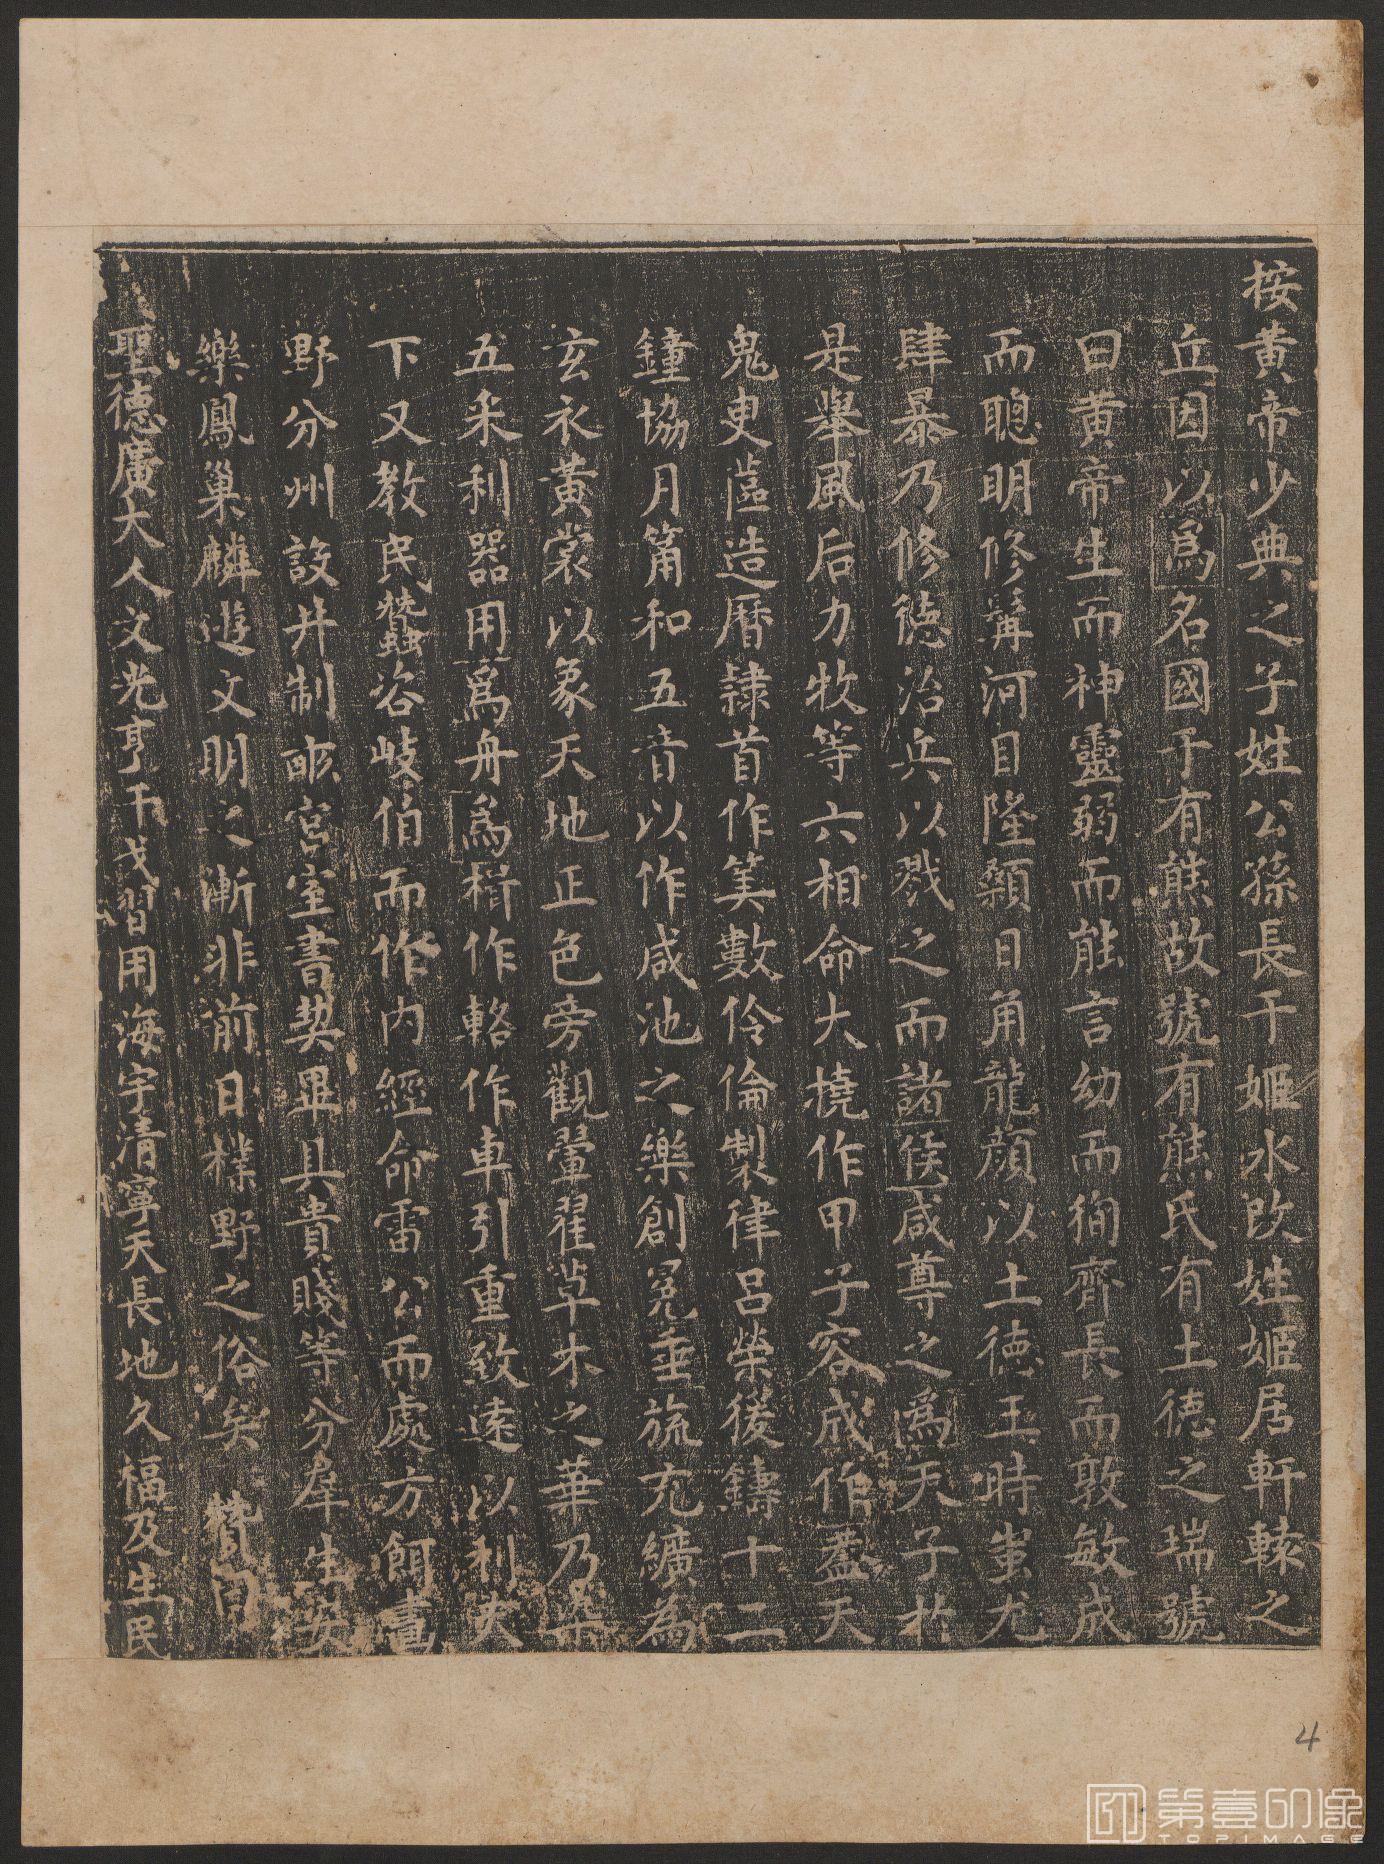 按黄帝少典之子姓公孫長于姬水改姓姬居軒轅之
丘因以爲名國于有熊故號有熊氏有土徳之瑞號
曰黄帝生而神靈弱而能言幼而徇齊長而敦敏成
而聰明修髯河目隆顙日角龍顔以土徳王時蚩尤
肆暴乃修徳治兵以戮之而諸侯咸尊之爲天子於
是舉風后力牧等六相命大撓作甲子容成作蓋天
鬼臾蓲造曆隸首作筭數伶倫製律呂榮後鑄十二
鐘協月筩和五音以作咸池之樂創冕垂旒充纊為
玄衣黃裳以象天地正色旁觀翬翟草木之華乃染
五采利器用爲舟爲楫作輅作車引重致遠以利天
下又教民蠶谘岐伯而作内經命雷公而處方餌畫
野分州設井制畝宮室書契畢具貴賤等分羣生安
樂鳳巢麟遊文明之漸非前日樸野之俗矣 贊曰
聖德廣大人文光亨干戈習用海宇清寧天長地久福及生民
4
第壹印像
TOPIMAGE